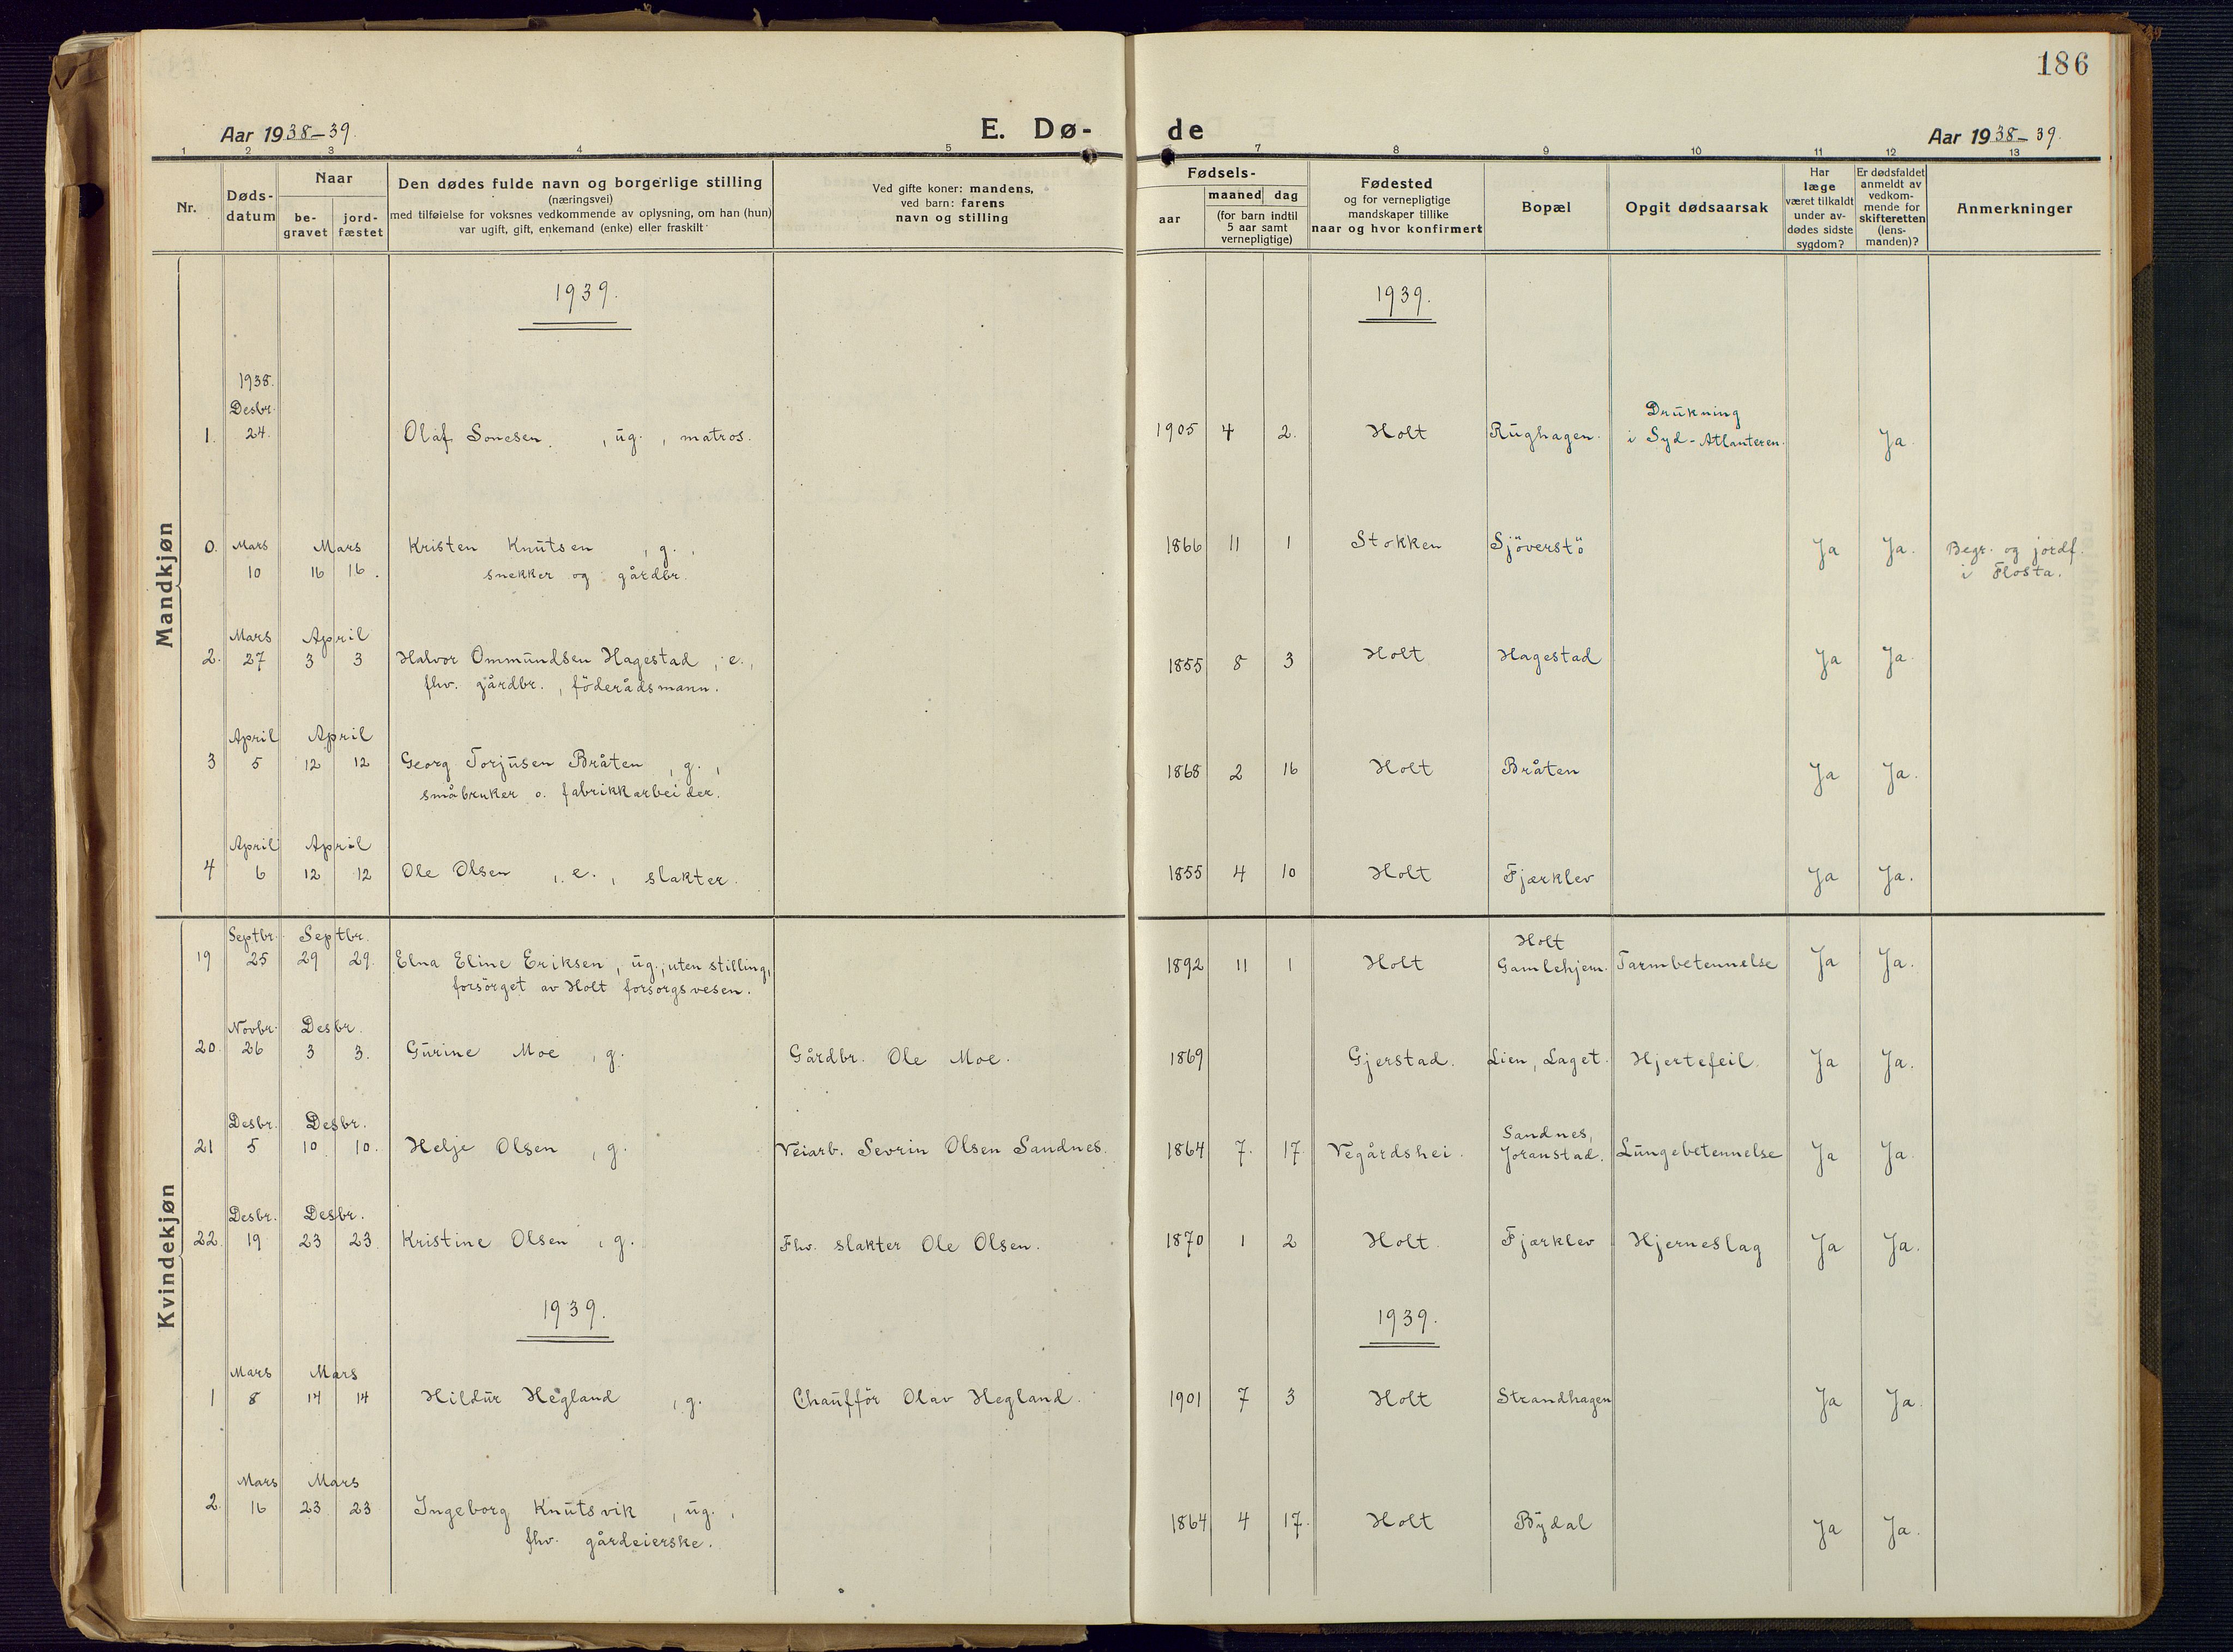 186
Aar 1938-39.
E. Dø-
de
Aar 1938-39.
1 2 3 4 5 7 8 9 10 11 12 13
Nr.
Døds-
datum
Naar
be-
gravet
jord-
fæstet
Den dødes fulde navn og borgerlige stilling
(næringsvei)
med tilføielse for voksnes vedkommende av oplysning, om han (hun)
var ugift, gift, enkemand (enke) eller fraskilt
Ved gifte koner: mandens,
ved barn: farens
navn og stilling
Fødsels-
aar
maaned dag
(for barn indtil
5 aar samt
vernepligtige)
Fødested
og for vernepligtige
mandskaper tillike
naar og hvor konfirmert
Bopæl
Opgit dødsaarsak
Har
læge
været tilkaldt
under av-
dødes sidste
sygdom?
Er dødsfaldet
anmeldt av
vedkom-
mende for
skifteretten
(lens-
manden)?
Anmerkninger
Mandkjøn
1939. 1939.
1938.
Desbr. Drukning
1. 24. Olaf Sonesen. , ug. , matros. 1905 4 2. Holt Rughagen. i Syd-Atlanteren. Ja.
0. Mars Mars Kristen Knutsen , g. , 1866 11 1 Stokken Sjöverstö Ja Ja. Begr. og jordf.
10 16 16. snekker og gårdbr. i Flosta.
Mars April
2. 27 3 3 Halvor Ommundsen Hagestad , e. , 1855 8 3 Holt Hagestad Ja Ja.
fhv. gårdbr. , föderådsmann.
April April
3 5 12 12 Georg Torjusen Bråten , g. , 1868 2 16 Holt Bråten Ja Ja.
småbruker o. fabrikkarbeider.
April April
4 6 12 12 Ole Olsen , e. , slakter. 1855 4 10 Holt Fjærklev Ja Ja.
Kvindekjøn
Septbr. Septbr. Holt
19 25 29 29. Elna Eline Eriksen , ug., uten stilling, 1892 11 1 Holt Gamlehjem. Tarmbetennelse Ja Ja.
forsörget av Holt forsorgsvesen.
Novbr. Desbr.
20. 26 3 3. Gurine Moe , g. Gårdbr. Ole Moe. 1869 Gjerstad. Lien, Laget. Hjertefeil. Ja Ja.
Desbr. Desbr. Sandnes,
21 5 10. 10. Helje Olsen , g. Veiarb. Sevrin Olsen Sandnes. 1864 7. 17. Vegårdshei. Joranstad. Lungebetennelse Ja Ja.
Desbr. Desbr.
22. 19 23 23. Kristine Olsen , g. Fhv. slakter Ole Olsen. 1870 1 2 Holt. Fjærklev Hjerneslag Ja Ja.
1939. 1939.
Mars Mars
1 8 14 14 Hildur Hegland , g. Chafför Olav Hegland. 1901 7 3 Holt Strandhagen Ja Ja.
Mars Mars
2. 16 23 23 Ingeborg Knutsvik , ug. , 1864 4 17. Holt Bydal Ja Ja.
fhv. gårdeierske.